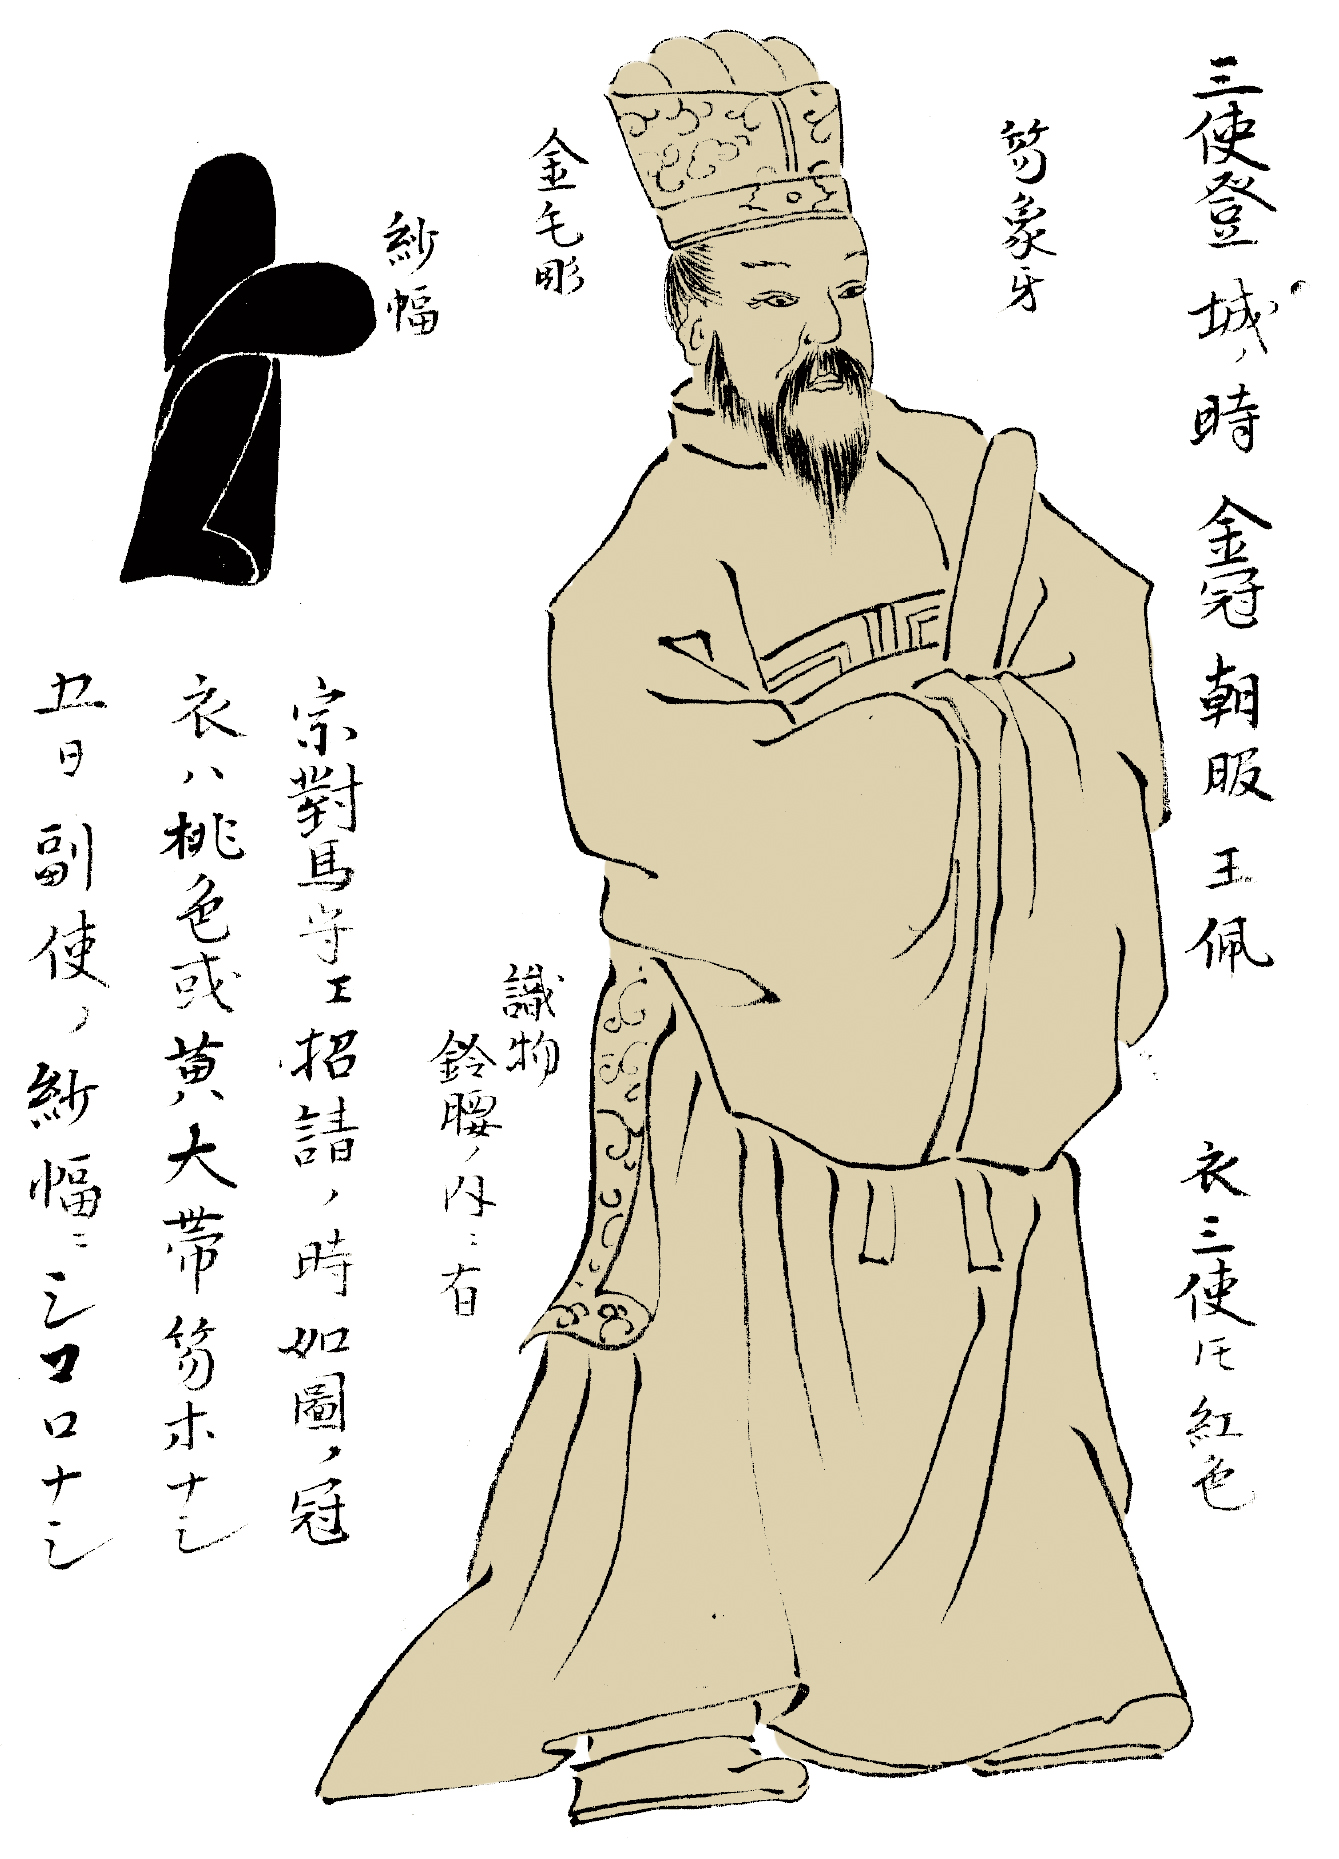 三使登城ノ時金冠朝服王佩
衣三使トモ紅色
笏象牙
金毛彫
紗帽
識物
鈴腰ノ内ニ有
宗對馬守エ招請ノ時如圖ノ冠
衣ハ桃色或黄ハ大帯笏木ナシ
五日副使ノ紗帽ニシココナシ